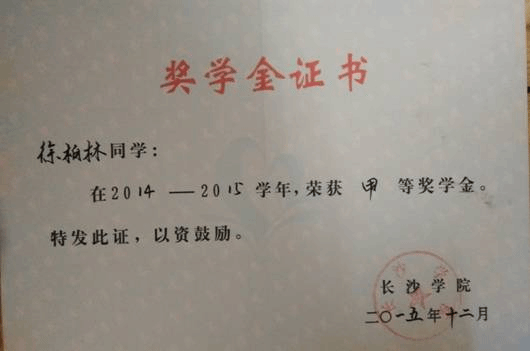 奖学金证书
徐柏林同学：
在2014—2015学年，荣获 甲 等奖学金。
特发此证，以资鼓励。
长沙学院
长沙学院
二〇一五年十二月